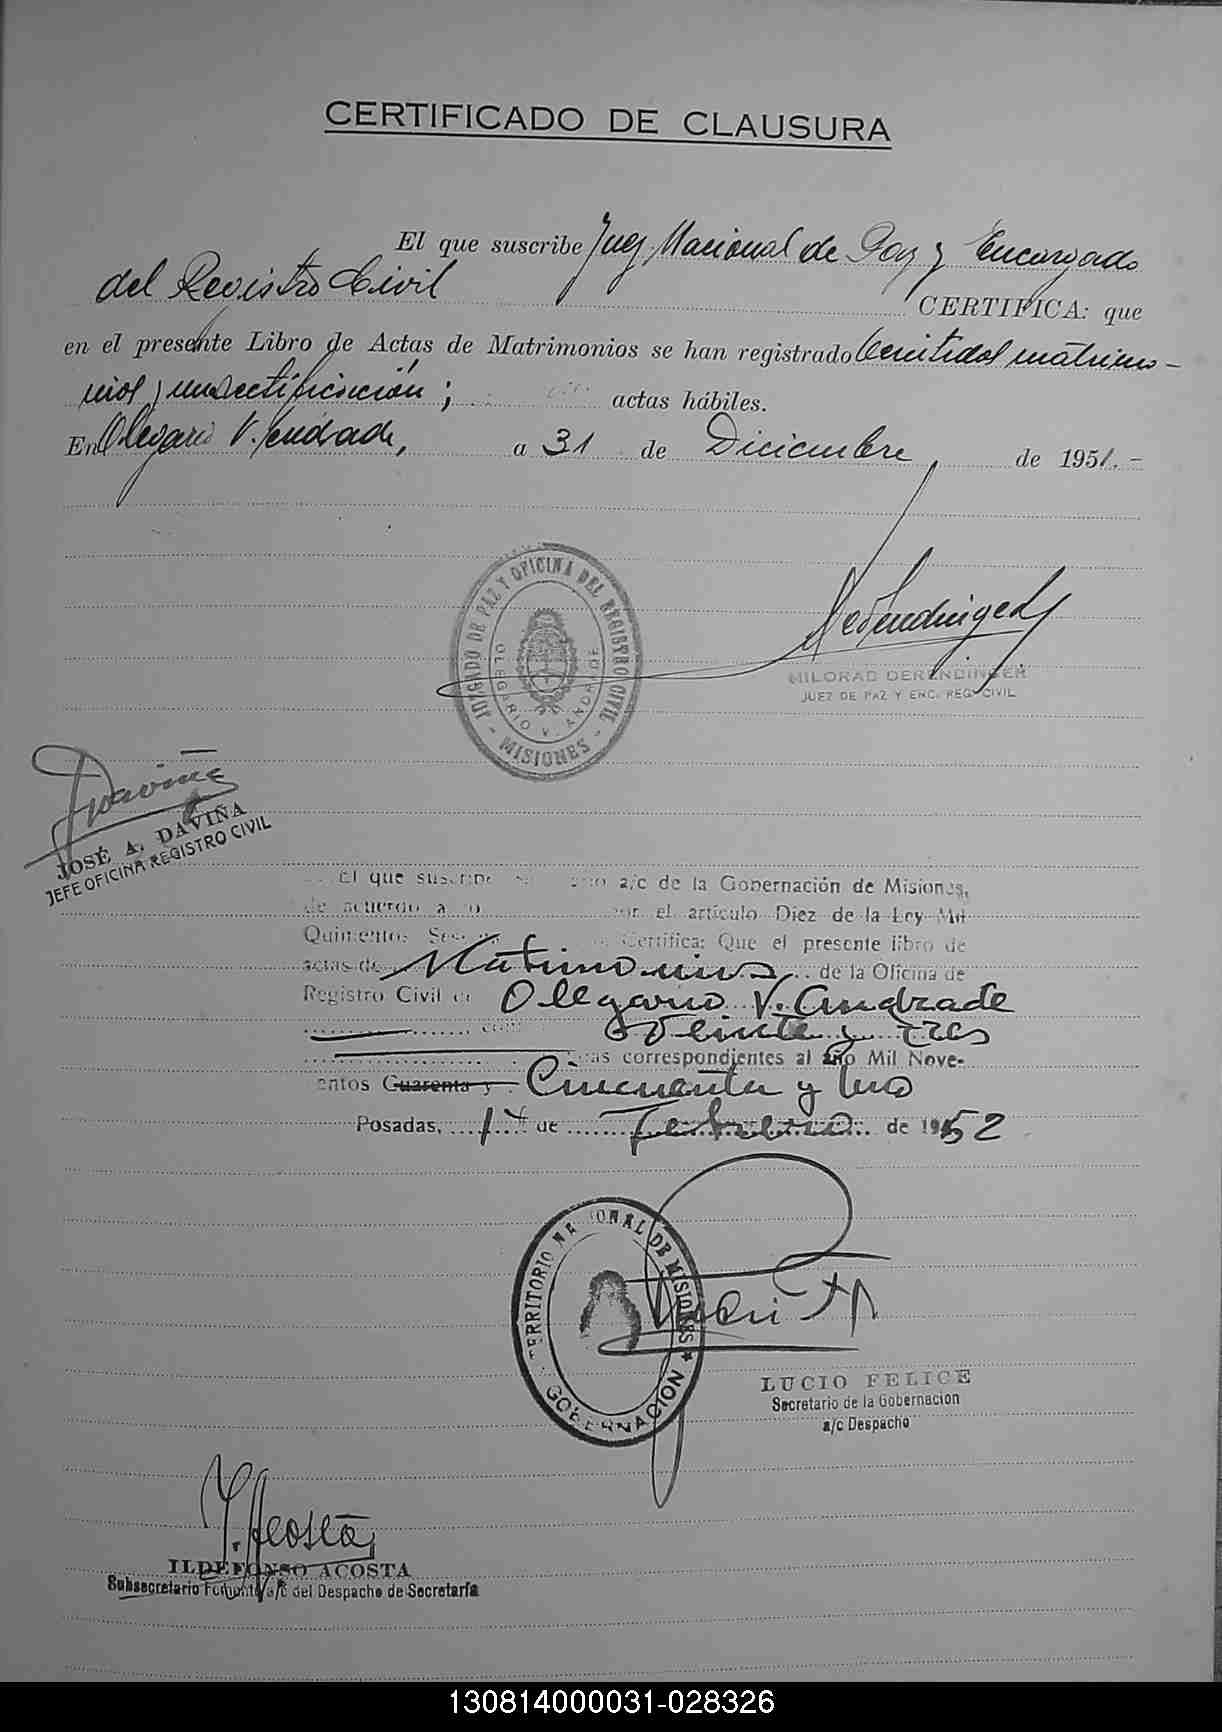 CERTIFICADO DE CLAUSURA
El que suscribe Juez Nacional de Paz y Encargado
del Registro Civil CERTIFICA: que
en el presente Libro de Actas de Matrimonios se han registrado Veintidos matrimo-
nios y una rectificación; actas hábiles.
En Olegario V. Andrade, a 31 de Diciembre de 1951.-
JUZGADO DE PAZ Y OFICINA DEL REGISTRO CIVIL
OLEGERIO V. ANDRADE
- MISIONES -
Derendinger
MILORAD DERENDINGER
JUEZ DE PAZ Y ENC. REG. CIVIL
JDaviña
JOSÉ A. DAVIÑA
JEFE OFICINA REGISTRO CIVIL
El que suscribe a/c de la Gobernación de Misiones,
de acuerdo a lo por el artículo Diez de la Ley Mil
Quinientos Certifica: Que el presente libro de
actas de Matrimonios de la Oficina de
Registro Civil de Olegario V. Andrade
Veinte y tres
correspondientes al año Mil Nove-
entos Cuarenta y Cincuenta y Uno
Posadas, 1º de Febrero de 1952
TERRITORIO NACIONAL DE MISIONES
GOBERNACION
LUCIO FELICE
Secretario de la Gobernacion
a/c Despacho
I. Acosta
ILDEFONSO ACOSTA
Subsecretario Fomento a/c del Despacho de Secretaría
130814000031-028326